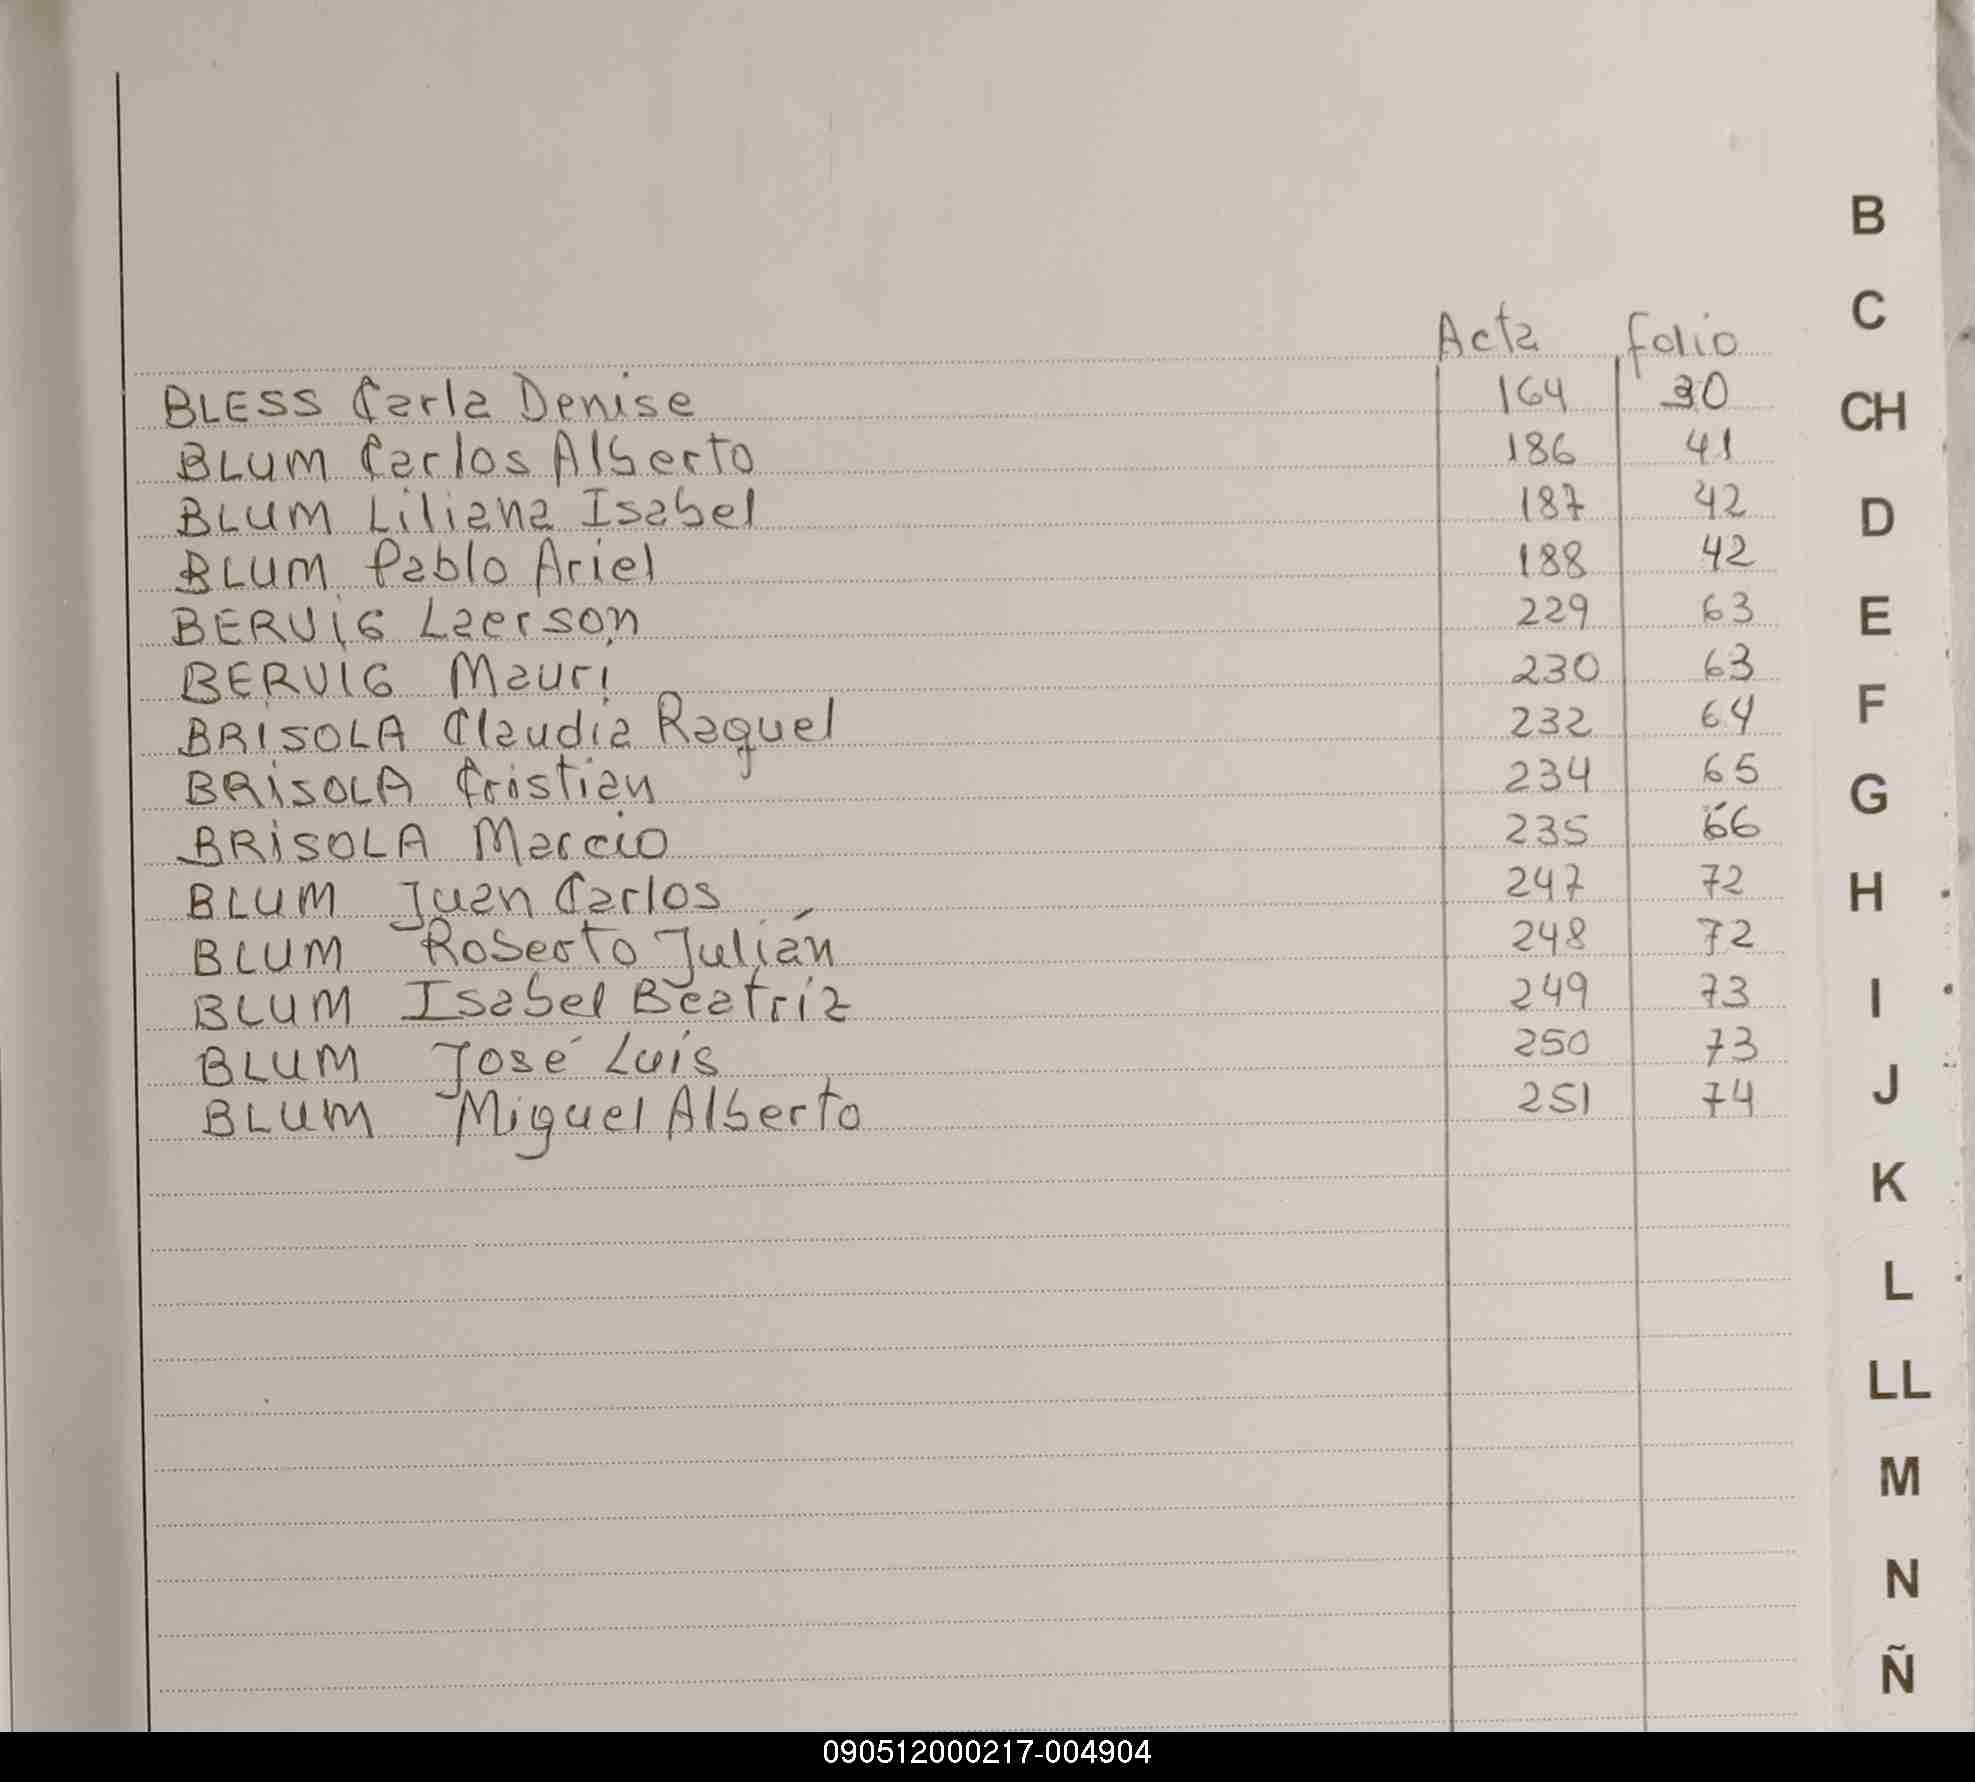 Acta folio
BLESS Carla Denise 164 30
BLUM Carlos Alberto 186 41
BLUM Liliana Isabel 187 42
BLUM Pablo Ariel 188 42
BERVIG Laerson 229 63
BERVIG Mauri 230 63
BRISOLA Claudia Raquel 232 64
BRISOLA Cristian 234 65
BRISOLA Marcio 235 66
BLUM Juan Carlos 247 72
BLUM Roberto Julián 248 72
BLUM Isabel Beatriz 249 73
BLUM José Luis 250 73
BLUM Miguel Alberto 251 74
B
C
CH
D
E
F
G
H
I
J
K
L
LL
M
N
Ñ
090512000217-004904